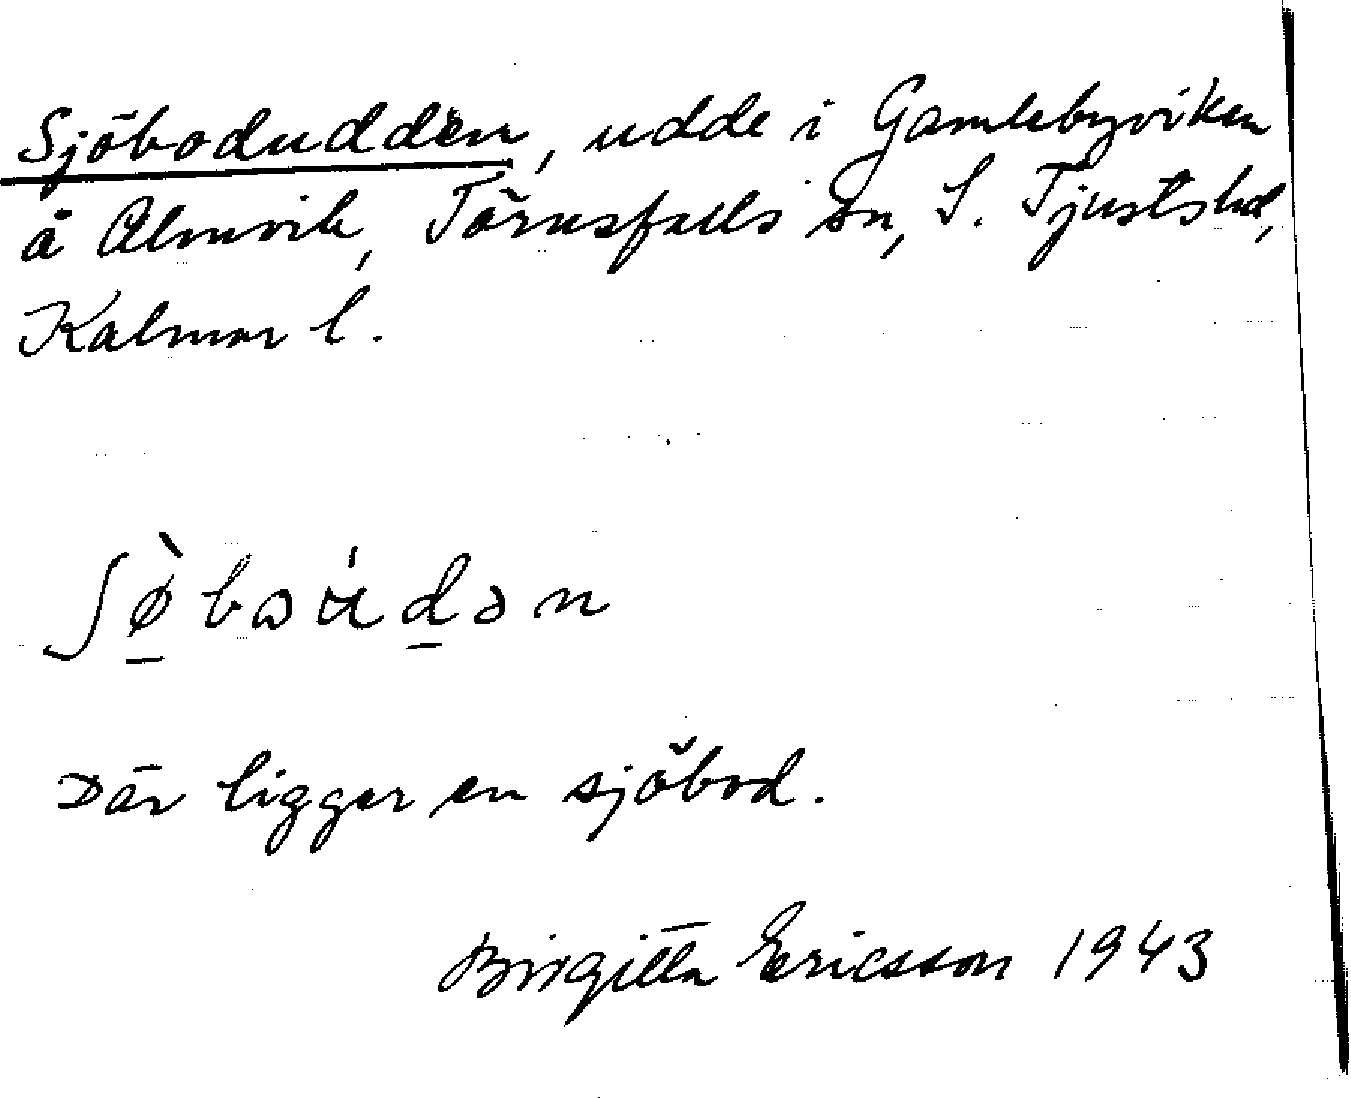 Sjöbodudden, udde i Gamlebyviken
å Almvik, Törnsfalls sn, S. Tjusts hd,
Kalmar l.
ʃø̀bωʉ́dən
Där ligger en sjöbod.
Birgitta Ericsson 1943